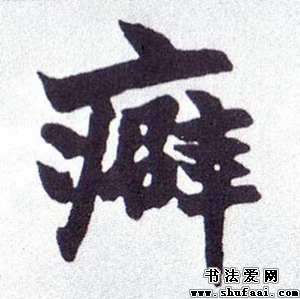 癖
书法爱网
www.shufaai.com